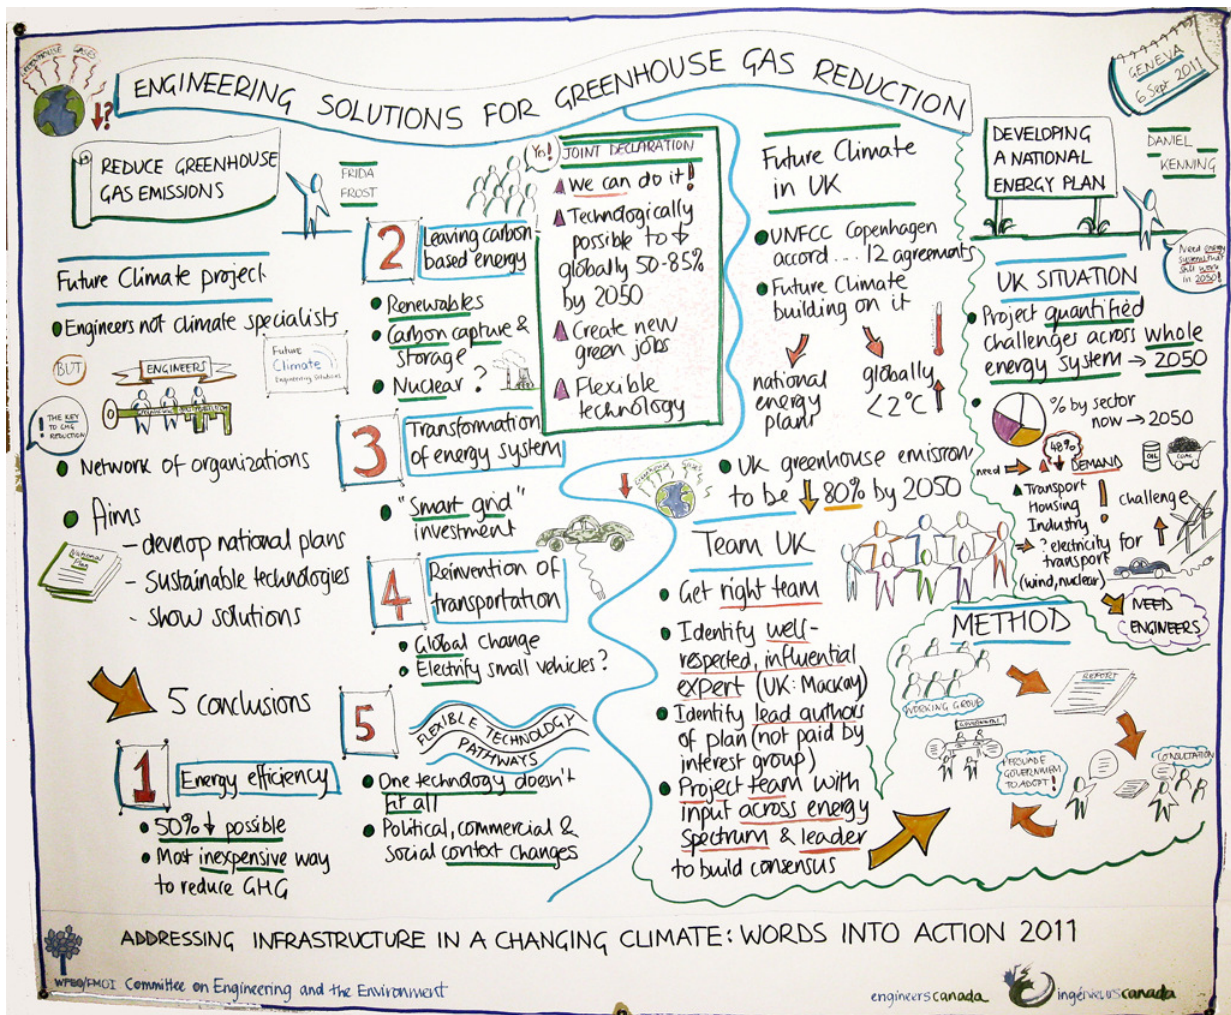 GREENHOUSE GASES
?
ENGINEERING SOLUTIONS FOR GREENHOUSE GAS REDUCTION
GENEVA
6 Sept 2011
REDUCE GREENHOUSE
GAS EMISSIONS
FRIDA
FROST
Future Climate project
Engineers not climate specialists
BUT
ENGINEERS
Future
Climate
Engineering Solutions
! THE KEY
TO GHG
REDUCTION
Network of organizations
Aims
National
Plan
- develop national plans
- Sustainable technologies
- show solutions
5 conclusions
1
Energy efficiency
50% ↓ possible
Most inexpensive way
to reduce GHG
2
Leaving carbon
based energy
Renewables
Carbon capture &
storage
Nuclear?
3
Transformation
of energy system
"Smart grid"
investment
4
Reinvention of
transportation
Global change
Electrify small vehicles?
5
FLEXIBLE TECHNOLOGY
PATHWAYS
One technology doesn't
fit all
Political, commercial &
social context changes
Yes!
JOINT DECLARATION
We can do it!
Technologically
possible to ↓
globally 50-85%
by 2050
Create new
green jobs
Flexible
technology
Future Climate
in UK
UNFCC Copenhagen
accord... 12 agreements
Future Climate
building on it
national
energy
plan
globally
<2°C ↑
UK greenhouse emission
to be ↓ 80% by 2050
Team UK
Get right team
Identify well-
respected, influential
expert (UK: Mackay)
Identify lead authors
of plan (not paid by
interest group)
Project team with
input across energy
spectrum & leader
to build consensus
DEVELOPING
A NATIONAL
ENERGY PLAN
DANIEL
KENNING
Need energy
system that
still work
in 2050!
UK SITUATION
Project quantified
challenges across whole
energy system → 2050
% by sector
now → 2050
48%
need → ↓ DEMAND
OIL
COAL
Transport
Housing
Industry
! challenge
→ ? electricity for
transport
(wind, nuclear)
NEED
ENGINEERS
METHOD
WORKING GROUP
REPORT
GOVERNMENT
CONSULTATION
PERSUADE
GOVERNMENT
TO ADOPT!
ADDRESSING INFRASTRUCTURE IN A CHANGING CLIMATE: WORDS INTO ACTION 2011
WFEO/FMOI Committee on Engineering and the Environment
engineerscanada
ingénieurscanada